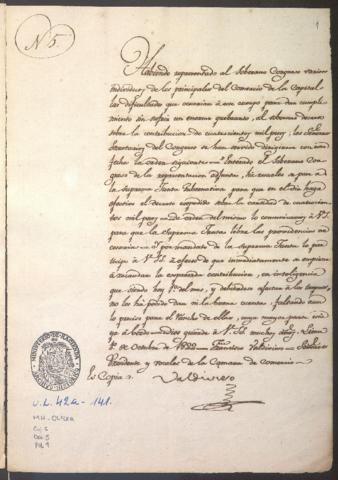 N 5.
1
Habiendo representado al Soberano Congreso varios
individuos de los principales del Comercio de la Capital
las dificultades que ocurrian á este cuerpo para dar cumpli-
miento sin sufrir un enorme quebranto, al soberano decreto
sobre la contribucion de cuatrocientos mil pesos; los Señores
Secretarios del Congreso se han servido dirigirme con esta
fecha la orden siguiente = Yltmo. Señor El Soberano Con-
greso de la representacion adjunta, ha resuelto se pase á
la suprema Junta Gubernativa para que en el dia haga
efectivo el decreto expedido sobre la cantidad de cuatrocien-
tos mil pesos = De orden del mismo lo comunicamos á V.S.
para que la Suprema Junta libre las providencias ne-
cesarias = Y por mandato de la suprema Junta lo par-
ticipo á V.S.S. á efecto de que inmediatamente se empiece
á recaudar la expresada contribucion, en inteligencia
que siendo hoy 1º del mes, y debiendose efectuar
no les ha podido dar ni la buena cuenta; faltando aun
lo preciso para el
á bordo = Dios guarde á V.S.S. muchos años. Lima
1º de Octubre de 1822 = Francisco Valdivieso = Señores
Presidente y vocales de la Camara de comercio =
Es Copia
Valdivieso
MINISTERIO DE HACIENDA
V.L. 42a - 141.
MH-OL42A
Caj. 5
Doc 5
Fol 1